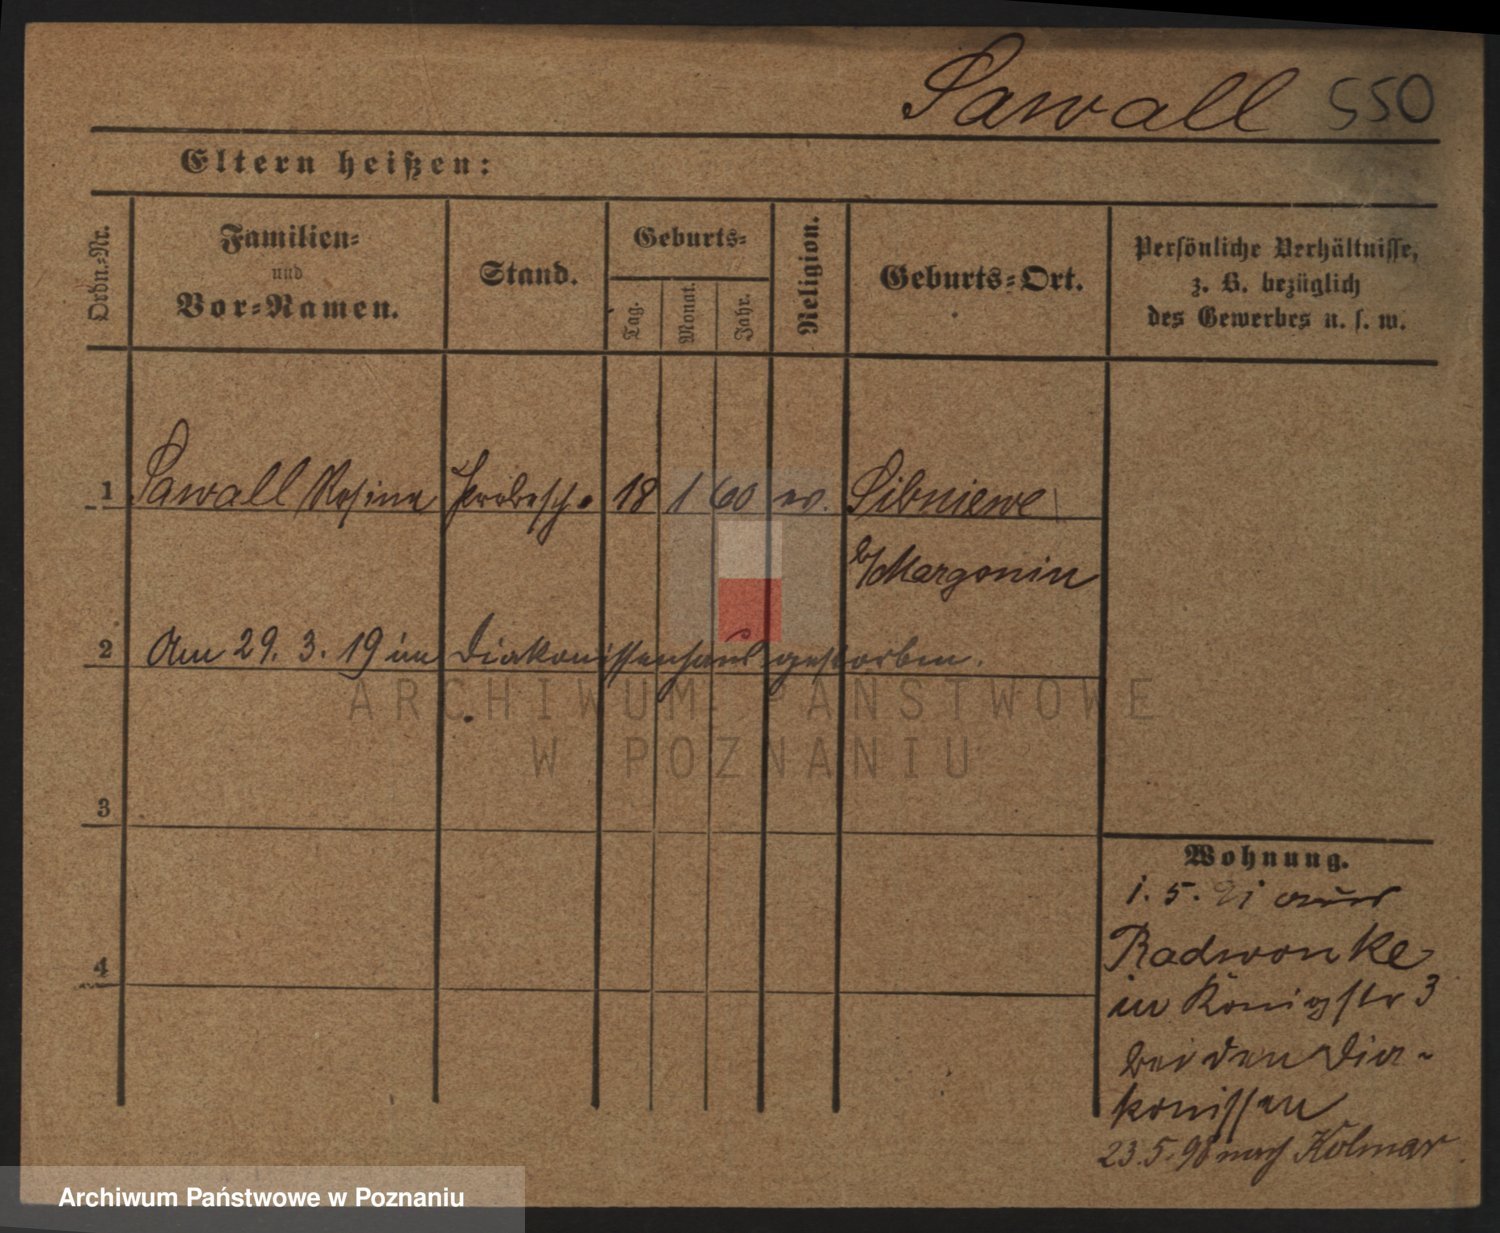 Sawall 550
Eltern heißen:
Ordn.-Nr.
Familien-
und
Vor-Namen.
Stand.
Geburts-
Tag.
Monat.
Jahr.
Religion.
Geburts-Ort.
Persönliche Verhältnisse,
z. B. bezüglich
des Gewerbes u. s. w.
1 Sawall Rosina Probesch. 18 1 60 ev. Sibniewo
b/Margonin
2 Am 29. 3. 19 im Diakonissenhaus gestorben.
ARCHIWUM PAŃSTWOWE
W POZNANIU
3
4
Wohnung.
1. 5. 91 aus
Radwonke
in Königstr 3
bei den Dia-
konissen
23.5.98 nach Kolmar
Archiwum Państwowe w Poznaniu